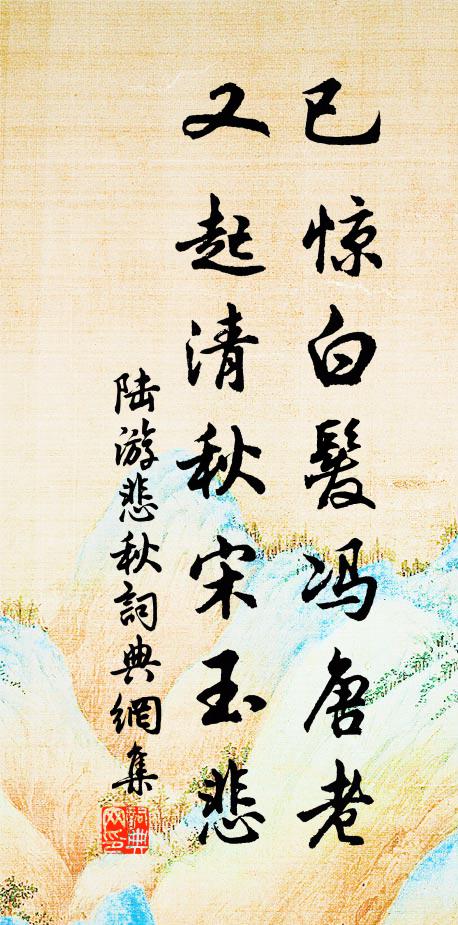 已惊白髮冯唐老
又起清秋宋玉悲
陆游悲秋詞典網集
詞典
网印